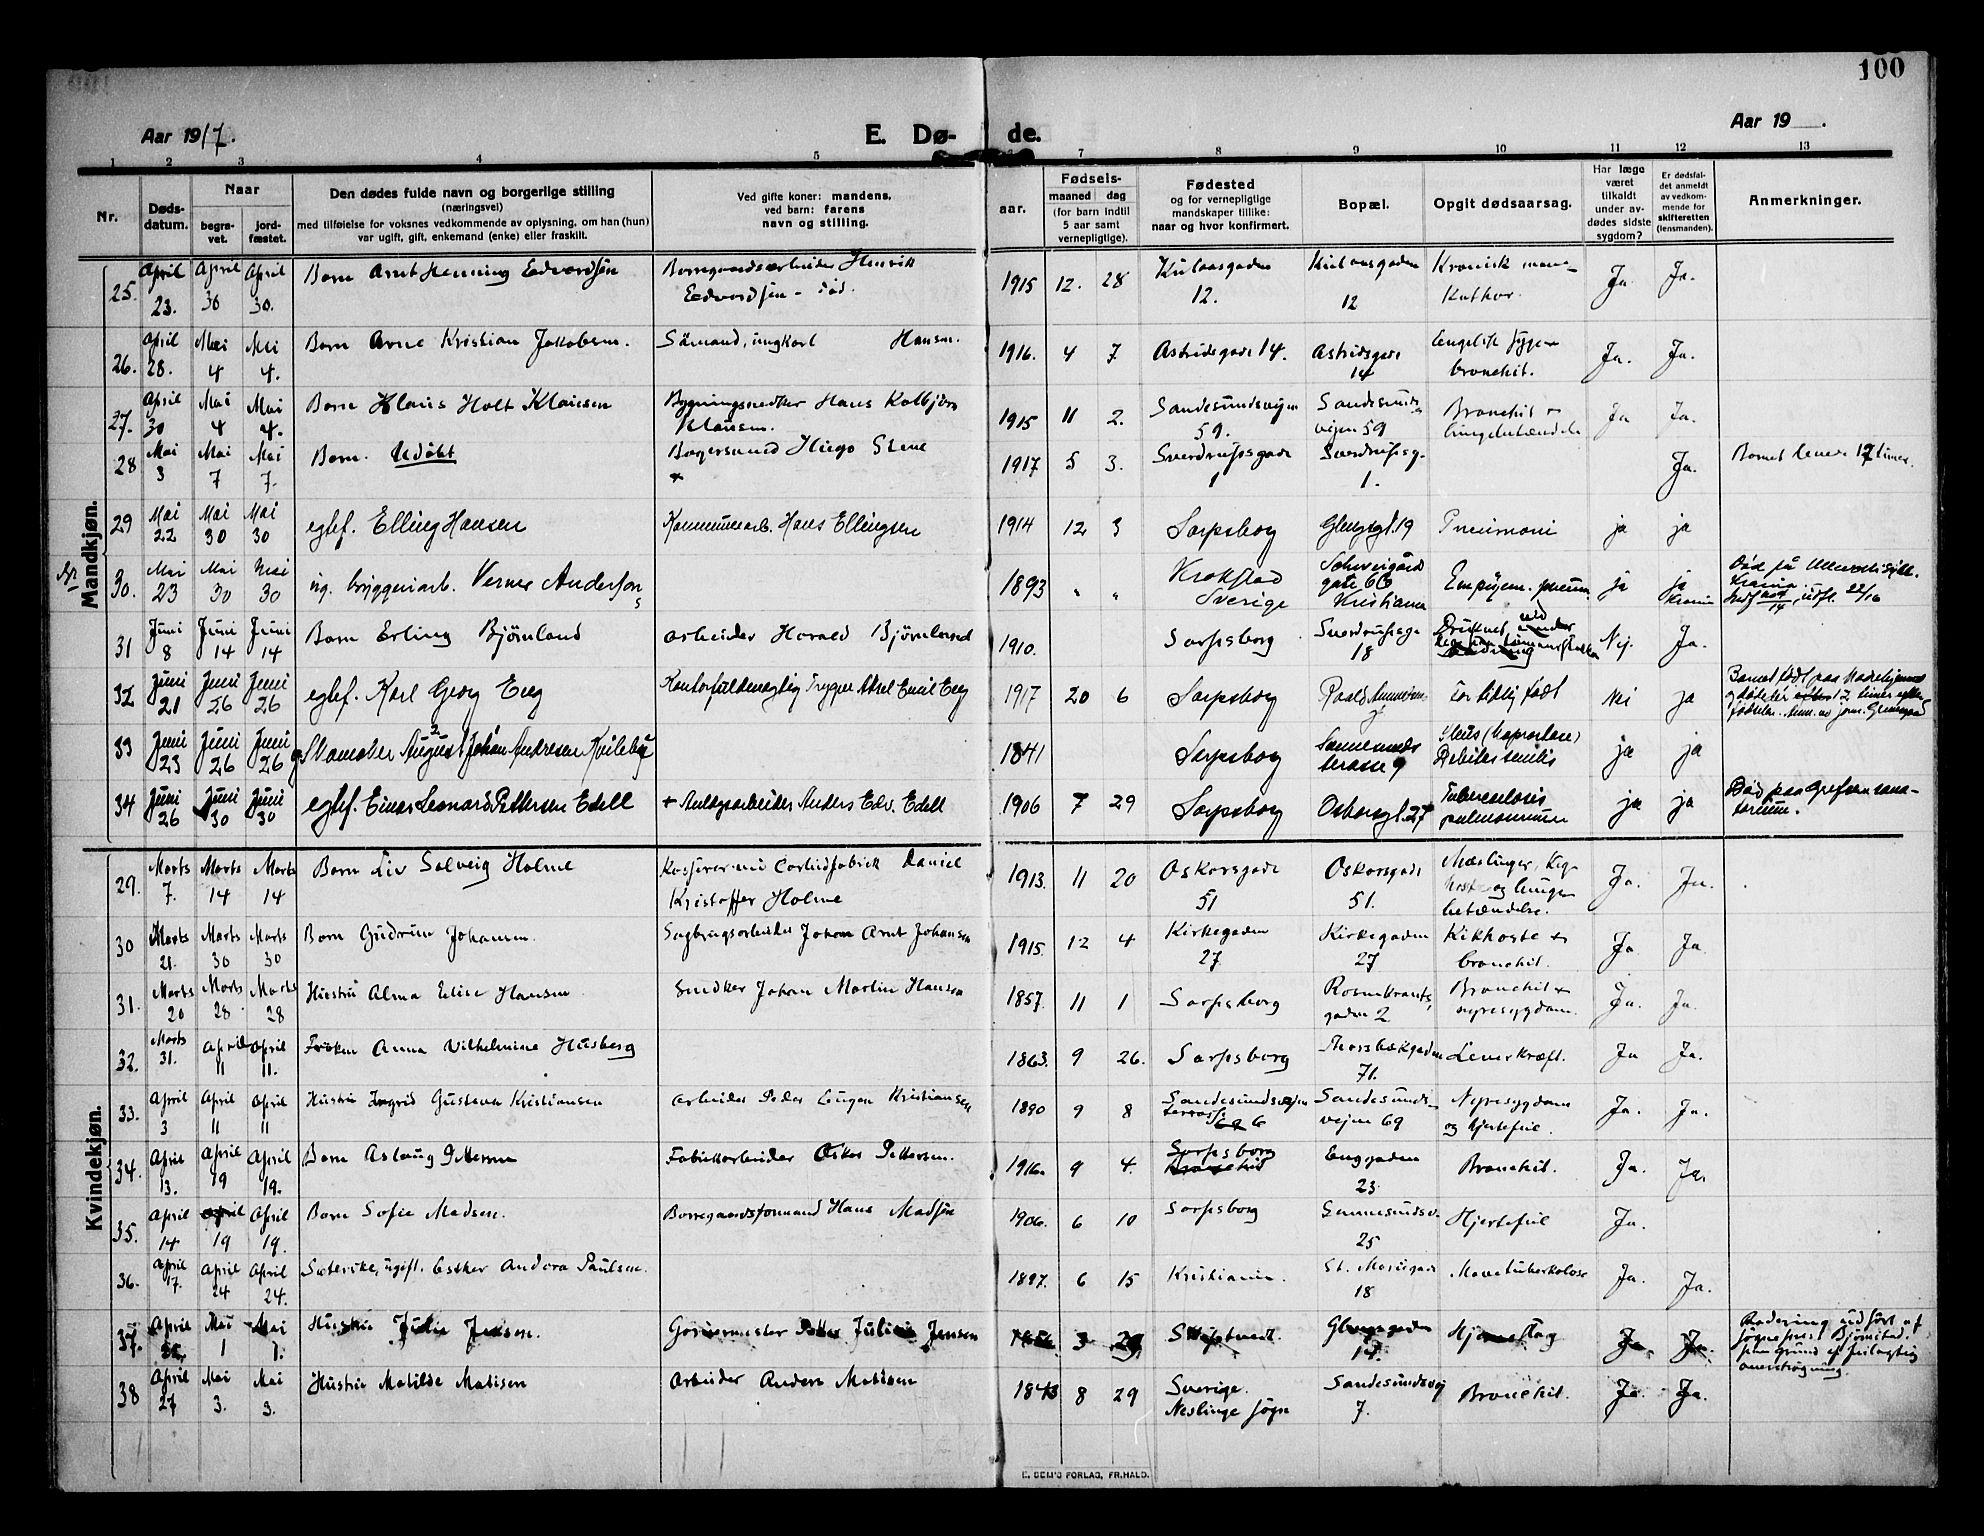 100
Aar 1917.
E. Dø-
de.
Aar 19__.
1 2 3 4 5 6 7 8 9 10 11 12 13
Nr.
Døds-
datum.
Naar
begra-
vet.
jord-
fæstet.
Den dødes fulde navn og borgerlige stilling
(næringsvei)
med tilføielse for voksnes vedkommende av oplysning, om han (hun)
var ugift, gift, enkemand (enke) eller fraskilt.
Ved gifte koner: mandens,
ved barn: farens
navn og stilling.
Fødsels-
aar.
maaned dag
(for barn indtil
5 aar samt
vernepligtige).
Fødested
og for vernepligtige
mandskaper tillike:
naar og hvor konfirmert.
Bopæl.
Opgit dødsaarsag.
Har læge
været
tilkaldt
under av-
dødes sidste
sygdom?
Er dødsfal-
det anmeldt
av vedkom-
mende for
skifteretten
(lensmanden).
Anmerkninger.
Mandkjøn.
25. April 23. April 30 April 30. Barn Arnt Henning Edvardsen Borregaardsarbeider Henrik
Edvardsen - død. 1915 12. 28 Kulaasgaden
12. Kulaasgaden
12 Kronisk mave-
Kathar. Ja. Ja.
26. April 28. Mai 4 Mai 4. Barn Arne Kristian Jakobsen. Sömand, ungkarl Hansen. 1916. 4 7 Astridsgade 14. Astridsgade
14 Engelsk syge +
bronchit. Ja. Ja.
27. April 30 Mai 4 Mai 4. Barn Klaus Holt Klausen Bygningssnedker Hans Kolbjörn
Klausen. 1915 11 2. Sandesundsveien
59. Sandesunds-
veien 59 Bronchit +
lungebetændelse Ja Ja.
28 Mai 3 Mai 7 Mai 7. Barn. Udöbt Bagersvend Hugo Stene
+ 1917 5 3. Sverdrupsgade
1 Sverdrupsg.
1. Ja. Barnet levede 17 timer.
29 Mai 22 Mai 30 Mai 30 egtef. Elling Hansen Kommunearb. Hans Ellingsen 1914 12 3 Sarpsborg Glengsgt. 19 Pneumoni ja ja
30. Mai 23 Mai 30 Mai 30 ug. bryggeriarb. Verner Anderson 1893 " " Krokstad
Sverige Schweigårds
gate 66
Kristiania Empyem. pneum. ja ja
Krania
31 Juni 8 Juni 14 Juni 14 Barn Erling Bjørnland arbeider Harald Bjørnland 1910. Sarpsborg Sverdrupsge
18 Druknet Nej. Ja.
32 Juni 21 Juni 26 Juni 26 egtef. Karl Georg Eng Kontorfuldmægtig Trygve Aksel Emil Eng 1917 20 6 Sarpsborg Roald Amundsens
g. For tidlig født Nei ja
33 Juni 23 Juni 26 Juni 26 Skomaker August Johan Andresen Kvileby 1841 Sarpsborg Sannesunds
terasse 9 Debilitas senilis ja ja
34 Juni 26 Juni 30 Juni 30 egtef. Einar Leonard Pettersen Edell + Anlægsarbeider Anders Edv. Edell 1906 7 29 Sarpsborg Oskarsgt. 27 Tuberculosis
pulmonum ja ja Død paa Grefsen sana-
torium.
Kvindekjøn.
29. Marts 7. Marts 14 Marts 14 Barn Liv Solveig Holme Kasserer ved Carbidfabrik Daniel
Kristoffer Holme 1913. 11 20 Oskarsgade
51 Oskarsgade
51. Mæslinger, Kig-
hoste og lunge
betændelse. Ja. Ja.
30 Marts 21. Marts 30 Marts 30 Barn Gudrun Johansen. Sagbrugsarbeider Johan Arnt Johansen 1915. 12 4 Kirkegaden
27 Kirkegaden
27 Kikhoste +
bronchit. Ja Ja.
31. Marts 20 Marts 28. Marts 28 Hustru Alma Elise Hansen Snedker Johan Martin Hansen 1857. 11 1 Sarpsborg Rosenkrants
gaden 2 Bronchit +
nyresygdom. Ja. Ja.
32. Marts 31. April 11 April 11. Frøken Anna Vilhelmine Husberg 1863. 9 26. Sarpsborg Thorsbækgaden
71. Leverkræft. Ja Ja.
33. April 3 April 11 April 11 Hustru Ingrid Gustava Kristiansen Arbeider Peder Eugen Kristiansen 1890 9 8 Sandesundsveien
terrasse 6 Sandesunds-
veien 69 Nyresygdom
og hjertefeil. Ja. Ja.
34. April 13. April 19 April 19. Barn Aslaug Pettersen Fabrikarbeider Oskar Pettersen. 1916. 9 4. Sarpsborg
Bronchit Enggaden
23 Bronchit. Ja. Ja.
35. April 14 April 19 April 19. Barn Sofie Madsen. Borregaardsformand Hans Madsen 1906. 6 10 Sarpsborg Sannesundsv.
25 Hjertefeil Ja.
36. April 17. April 24 April 24. Syerske, ugift. Esther Andora Paulsen. 1897. 6 15 Kristiania. St. Mariegade
18 Mavetuberkolose Ja. Ja.
37. April Mai 1 Mai 1. Hustru Julie Jensen. Garvermester Julius Jensen 3 29 Glengsgaden
17. Hjerneslag Ja. Ja. Radering udført af
sogneprest Bjørnstad.
paa grund af feilagtig
overstrygning.
38 April 27 Mai 3. Mai 3. Hustru Matilde Matisen Arbeider Anders Matisen 1843 8 29 Sverige.
Neslinge sogn Sandesundsvej
7. Bronchit. Ja. Ja.
E. SEM'S FORLAG, FR.HALD.